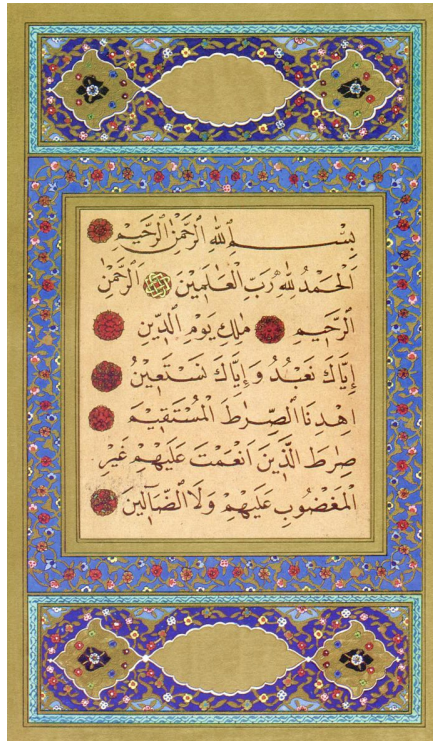 بِسْمِ ٱللّٰهِ الرَّحْمٰنِ الرَّحٖيمِ
اَلْحَمْدُ لِلّٰهِ رَبِّ الْعَالَمٖينَ اَلرَّحْمٰنِ
الرَّحٖيمِ مَالِكِ يَوْمِ الدّٖينِ
اِيَّاكَ نَعْبُدُ وَاِيَّاكَ نَسْتَعٖينُ
اِهْدِنَا الصِّرَاطَ الْمُسْتَقٖيمَ
صِرَاطَ الَّذٖينَ اَنْعَمْتَ عَلَيْهِمْ غَيْرِ
الْمَغْضُوبِ عَلَيْهِمْ وَلَا الضَّٓالّٖينَ